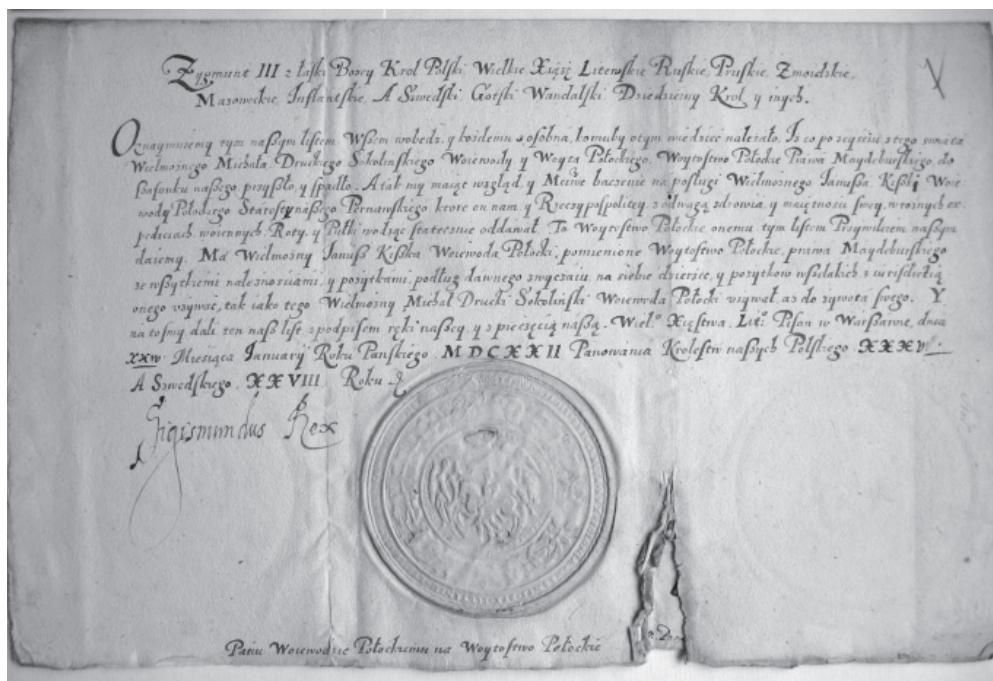 Zygmunt III z łaski Bozey Krol Polski Wielkie Xiążę Litewskie Ruskie, Pruskie, Zmoidskie,
Mazoweckie, Inflantskie, A Szwedski Gotski Wandalski Dziedziczny Krol, y inych.
Oznaymuiemy tym naszym listem Wszem wobedz, y kożdemu z osobna, komuby otym wiedziec nalezało. Iz co po zeysciu z tego swiata
Wielmoznego Michała, Druckiego Sokolinskiego Woiewody y Woyta Połockiego, Woytostwo Połockie Prawa Maydeburskiego, do
szafunku naszego, przyszło, y spadło. A tak my maiąc wzgląd, y baczenie na posługi Wielmoznego Janusza, Kiszki Woie
wody Połockiego Starosty naszego Pernawskiego ktore on nam, y Rzeczypospolitey, z odwagą zdrowia, y maiętnosci swey, w roznych ex
pediciach woiennych, Roty, y Pułki wodząc statecznie oddawał. To Woytostwo Połockie onemu tym listem Przywileiem naszym
daiemy. Ma Wielmozny Janusz Kiszka Woiewoda Połocki, pomienione Woytostwo Połockie, prawa Maydeburskiego
ze wszytkiemi naleznosciami, y pozytkami, podług dawnego zwyczaiu na siebie dzierzec, y pozytkow wszelakich z iurisdictią
onego uzywać, tak iako tego Wielmozny Michał Drucki Sokoliński Woiewoda Połocki uzywał, az do zywota swego. Y
na tosmy dali ten nasz list, z podpisem ręki naszey, y z pieczęcią naszą. Wiel.º Xięstwa. Lit.º Pisan w Warszawie, dnia
Miesiąca Januarij Roku Panskiego. MDCXXII Panowania Krolestw naszych Polskiego XXXV
A Szwedskiego. XXVIII. Roku
Sigismundus Rex
Panu Woiewodzie Połockiemu na Woytostwo Połockie